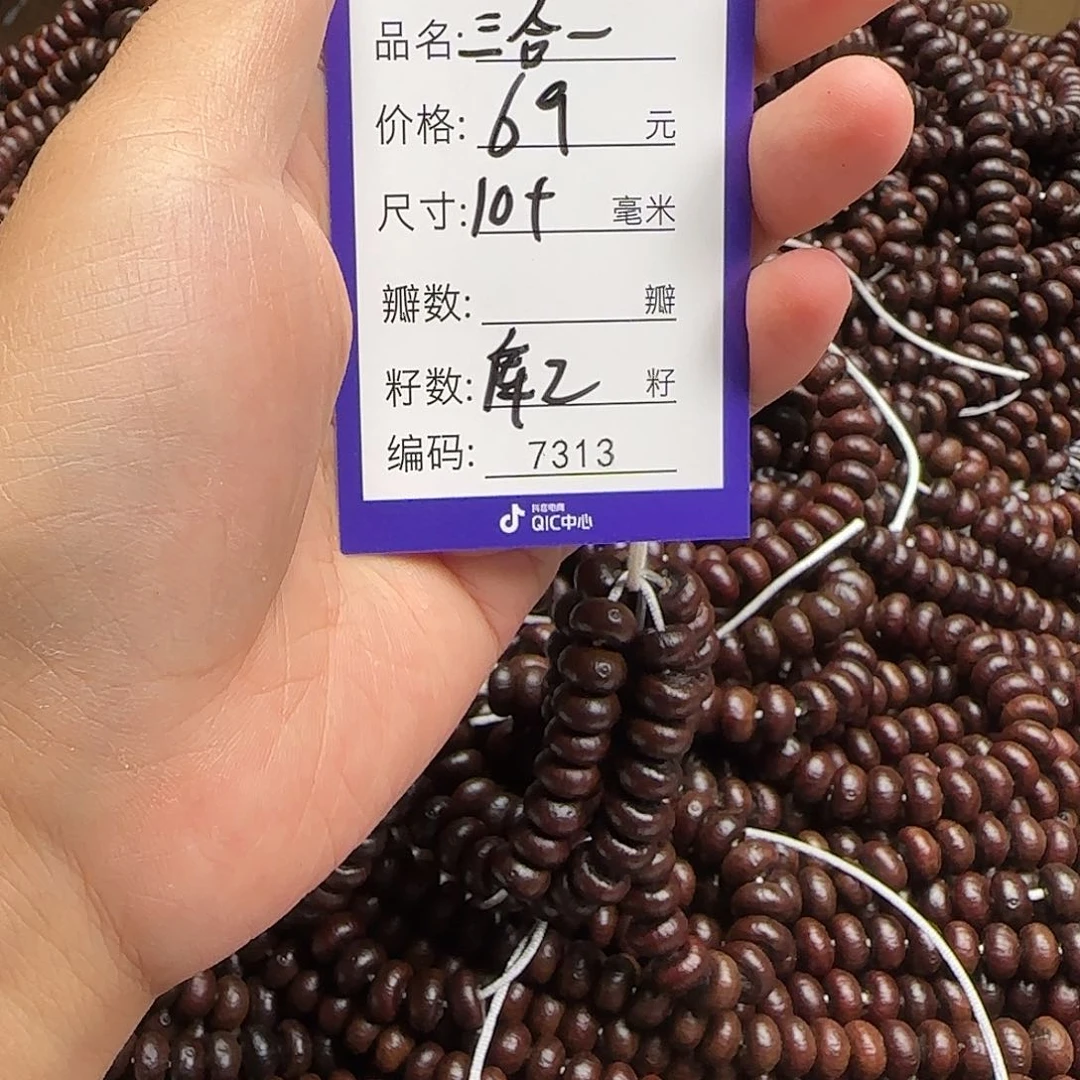 品名:三合一
价格:69元
尺寸:10+毫米
瓣数:瓣
籽数:库2籽
编码:7313
抖音电商
QIC中心